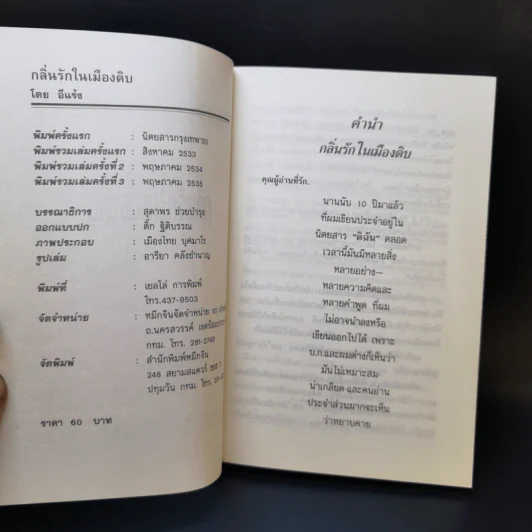 กลิ่นรักในเมืองดิบ
โดย อีแร้ง
พิมพ์ครั้งแรก : นิตยสารกรุงเทพ 30
พิมพ์รวมเล่มครั้งแรก : สิงหาคม 2533
พิมพ์รวมเล่มครั้งที่ 2 : พฤษภาคม 2534
พิมพ์รวมเล่มครั้งที่ 3 : พฤษภาคม 2535
บรรณาธิการ : สุดาพร ช่วยบำรุง
ออกแบบปก : ติ๊ก ฐิติบรรณ
ภาพประกอบ : เมืองไทย บุศมาโร
รูปเล่ม : อาริยา คลังชำนาญ
พิมพ์ที่ : เยลโล่ การพิมพ์
โทร.437-9503
จัดจำหน่าย : หมึกจีนจัดจำหน่าย
ถ.นครสวรรค์
กทม. โทร. 281-2740
จัดพิมพ์ : สำนักพิมพ์หมึกจีน
248 สยามสแควร์ ซอย
ปทุมวัน กทม. โทร.
ราคา 60 บาท
คำนำ
กลิ่นรักในเมืองดิบ
คุณผู้อ่านที่รัก,
นานนับ 10 ปีมาแล้ว
ที่ผมเขียนประจำอยู่ใน
นิตยสาร "ดิฉัน" ตลอด
เวลานี้มันมีหลายสิ่ง
หลายอย่าง—
หลายความคิดและ
หลายคำพูด ที่ผม
ไม่อาจนำลงหรือ
เขียนออกไปได้ เพราะ
บ.ก.และผมต่างก็เห็นว่า
มันไม่เหมาะสม
น่าเกลียด และคนอ่าน
ประจำส่วนมากจะเห็น
ว่าหยาบคาย